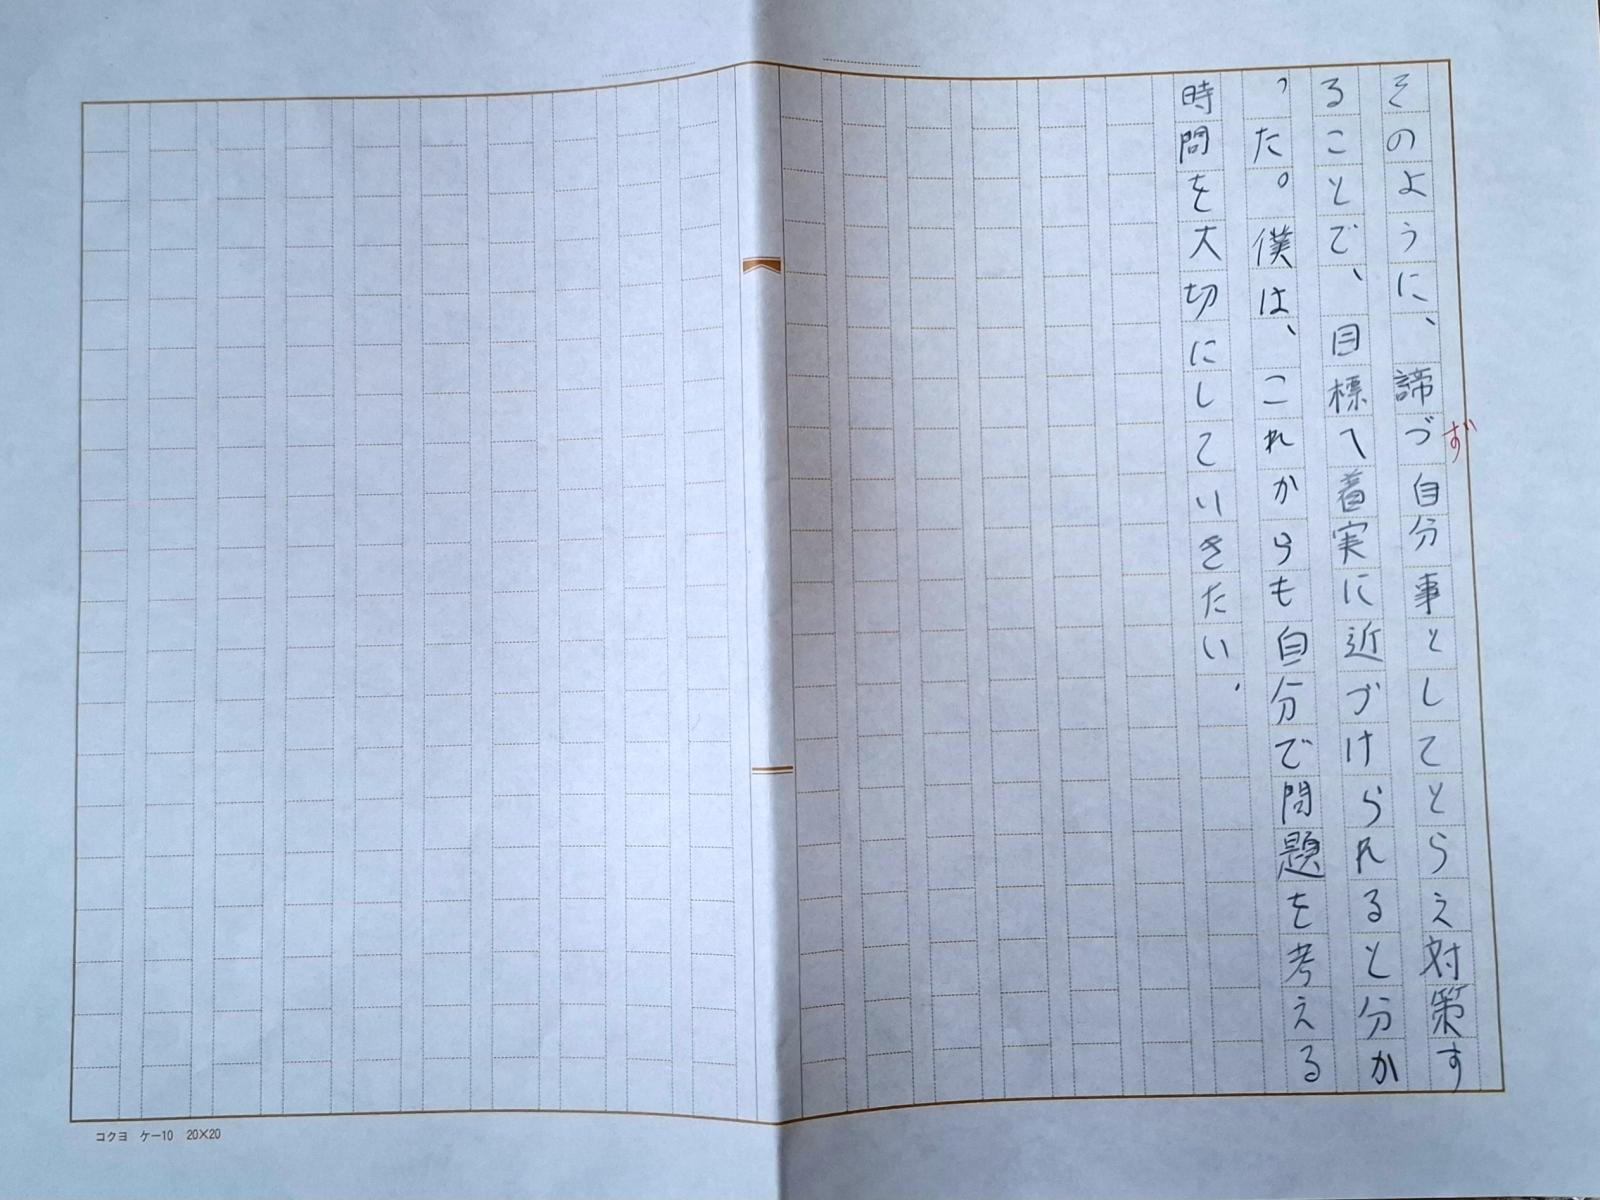 そのように、諦づ自分事としてとらえ対策す
ず
ることで、目標へ着実に近づけられると分か
った。僕は、これからも自分で問題を考える
時間を大切にしていきたい。
コクヨ ケー10 20×20